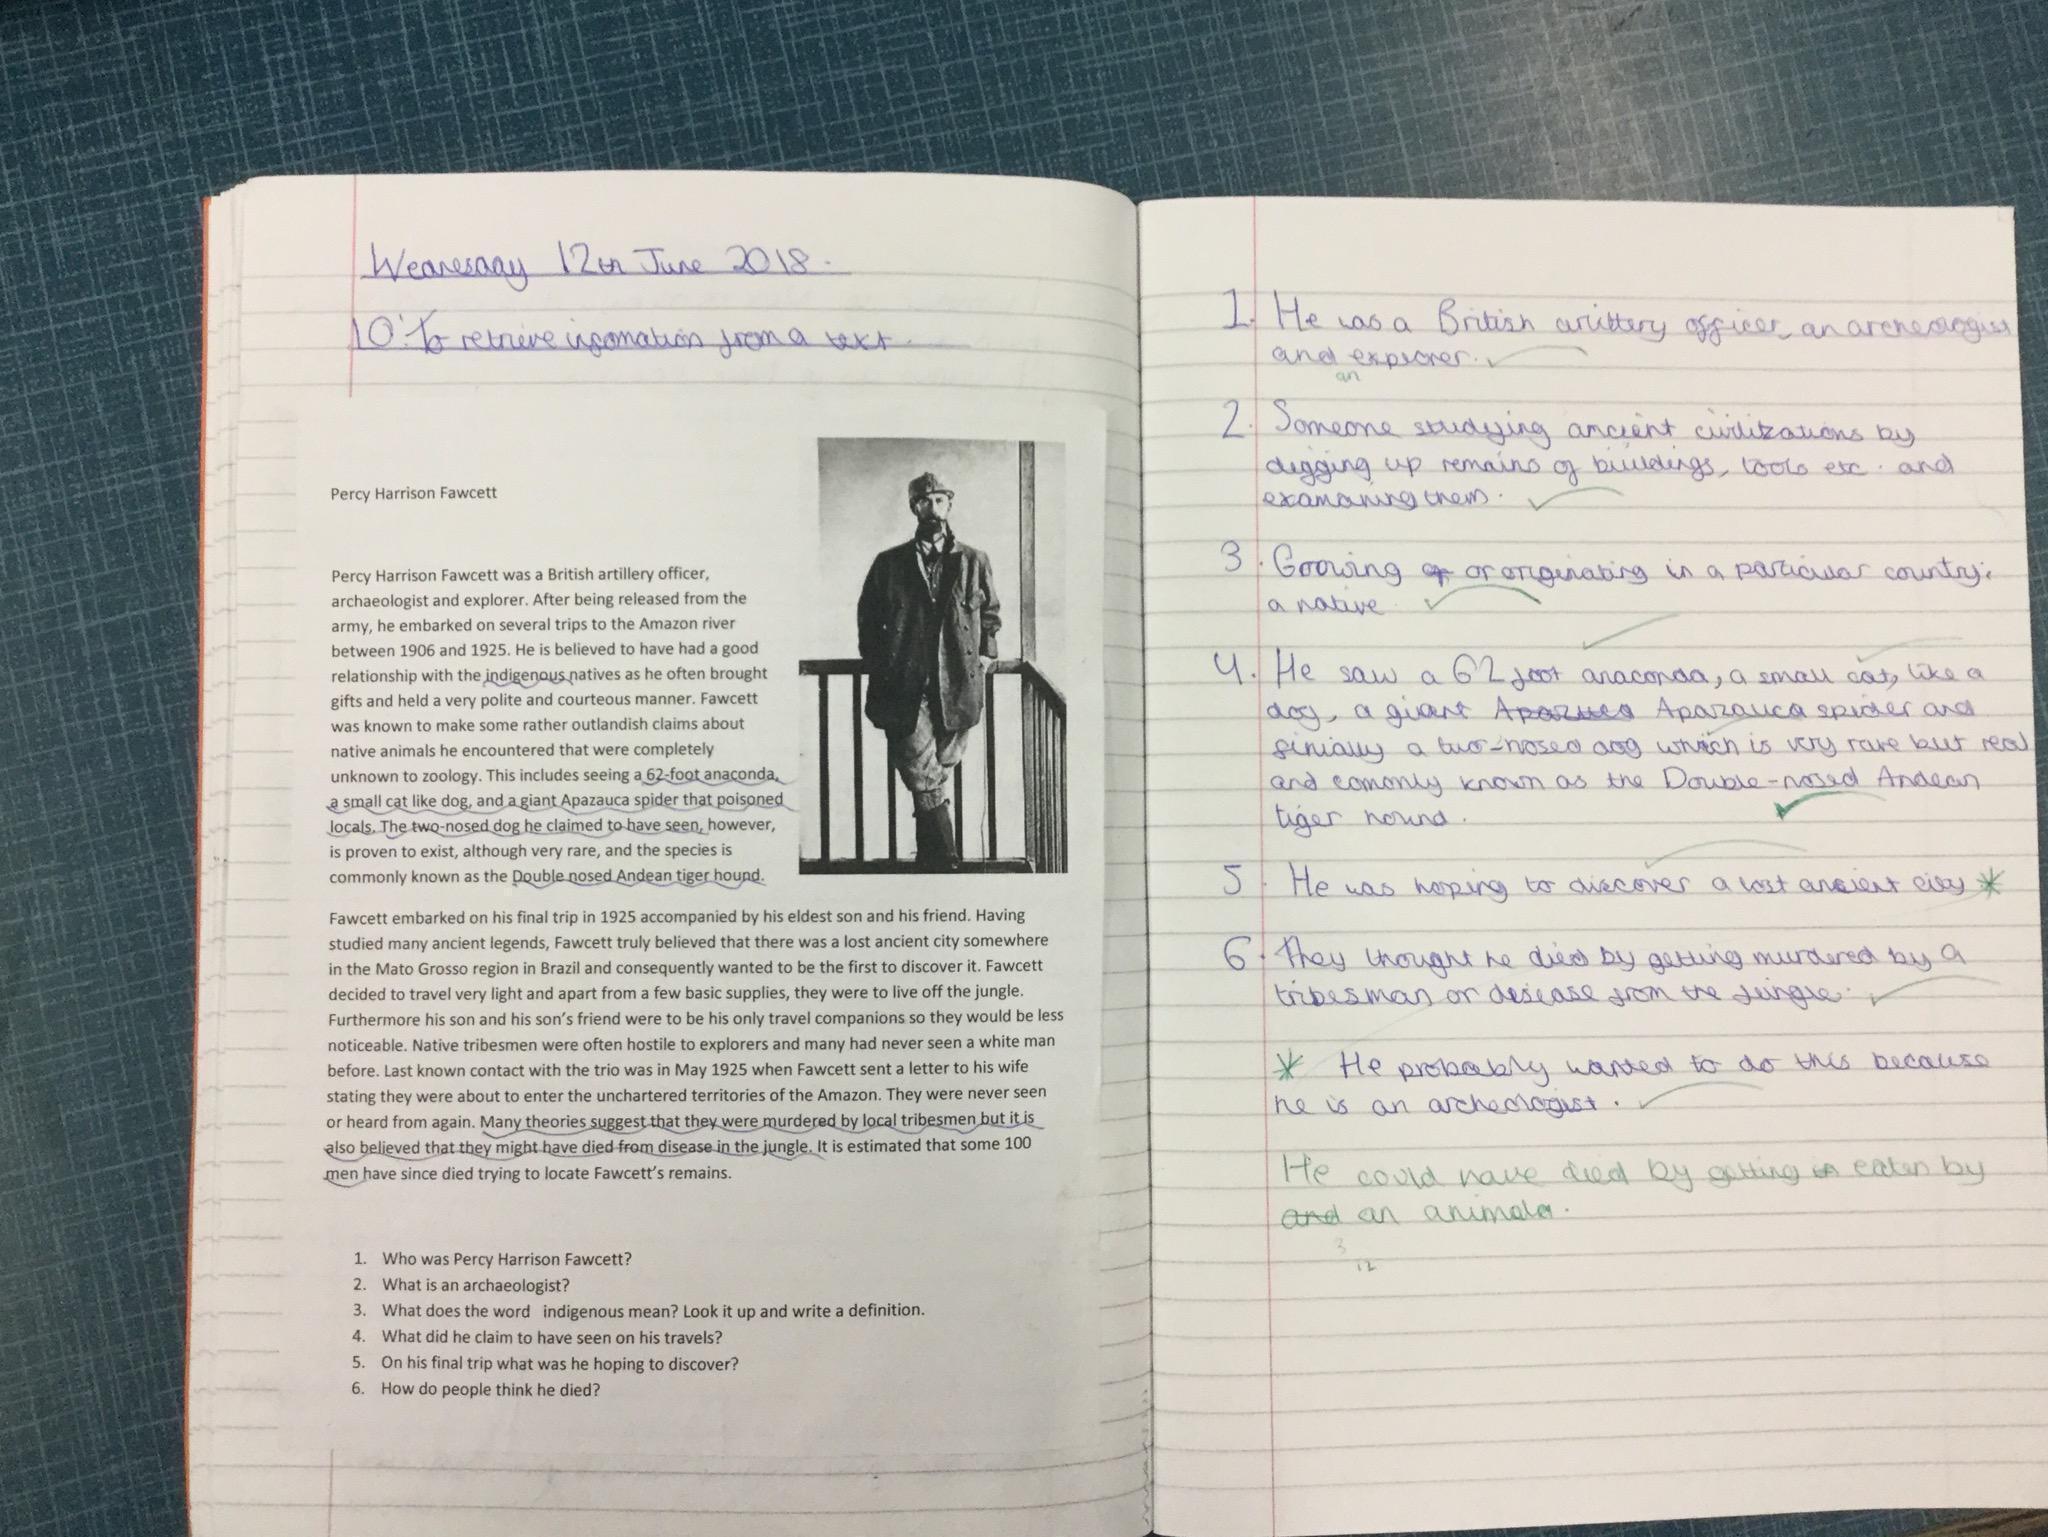 Wednesday 12th June 2018.
LO: To retrieve infomation from a text.
Percy Harrison Fawcett
Percy Harrison Fawcett was a British artillery officer,
archaeologist and explorer. After being released from the
army, he embarked on several trips to the Amazon river
between 1906 and 1925. He is believed to have had a good
relationship with the indigenous natives as he often brought
gifts and held a very polite and courteous manner. Fawcett
was known to make some rather outlandish claims about
native animals he encountered that were completely
unknown to zoology. This includes seeing a 62-foot anaconda,
a small cat like dog, and a giant Apazauca spider that poisoned
locals. The two-nosed dog he claimed to have seen, however,
is proven to exist, although very rare, and the species is
commonly known as the Double nosed Andean tiger hound.
Fawcett embarked on his final trip in 1925 accompanied by his eldest son and his friend. Having
studied many ancient legends, Fawcett truly believed that there was a lost ancient city somewhere
in the Mato Grosso region in Brazil and consequently wanted to be the first to discover it. Fawcett
decided to travel very light and apart from a few basic supplies, they were to live off the jungle.
Furthermore his son and his son's friend were to be his only travel companions so they would be less
noticeable. Native tribesmen were often hostile to explorers and many had never seen a white man
before. Last known contact with the trio was in May 1925 when Fawcett sent a letter to his wife
stating they were about to enter the unchartered territories of the Amazon. They were never seen
or heard from again. Many theories suggest that they were murdered by local tribesmen but it is
also believed that they might have died from disease in the jungle. It is estimated that some 100
men have since died trying to locate Fawcett's remains.
1. Who was Percy Harrison Fawcett?
2. What is an archaeologist?
3. What does the word indigenous mean? Look it up and write a definition.
4. What did he claim to have seen on his travels?
5. On his final trip what was he hoping to discover?
6. How do people think he died?
1. He was a British artillery officer, an archeologist
and explorer.
an
2. Someone studying ancient civilizations by
digging up remains of buildings, tools etc. and
examaning them.
3. Growing or or originating in a particular country;
a native
4. He saw a 62 foot anaconda, a small cat, like a
dog, a giant Apazauca spider and
finially a two-nosed dog which is very rare but real
and comonly known as the Double-nosed Andean
tiger hound.
5. He was hoping to discover a lost ancient city *
6. They thought he died by getting murdered by a
tribesman or desease from the jungle.
* He probably wanted to do this because
he is an archeologist.
He could have died by getting eaten by
and an animal.
3
12